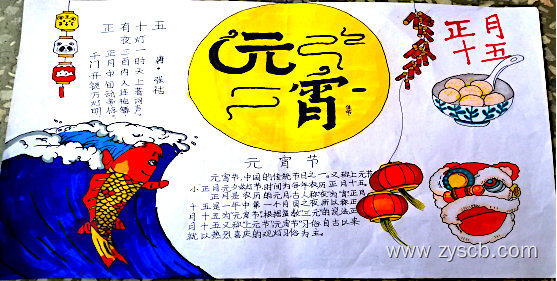 正月十五
元宵
十五
夜灯
唐·张祜
千门开锁万灯明
正月中旬动帝京
三百内人连袖舞
一时天上著词声
元宵节
元宵节,中国的传统节日之一,又称上元节
小正月、元夕或灯节,时间为每年农历正月十五。
正月是农历的元月,古人称"夜"为"宵",正月
十五是一年中第一个月圆之夜,所以称正
月十五为"元宵节"。根据道教"三元"的说法,正
月十五又称"上元节"。元宵节习俗自古以来
就以热烈喜庆的观灯习俗为主。
www.zyscb.com